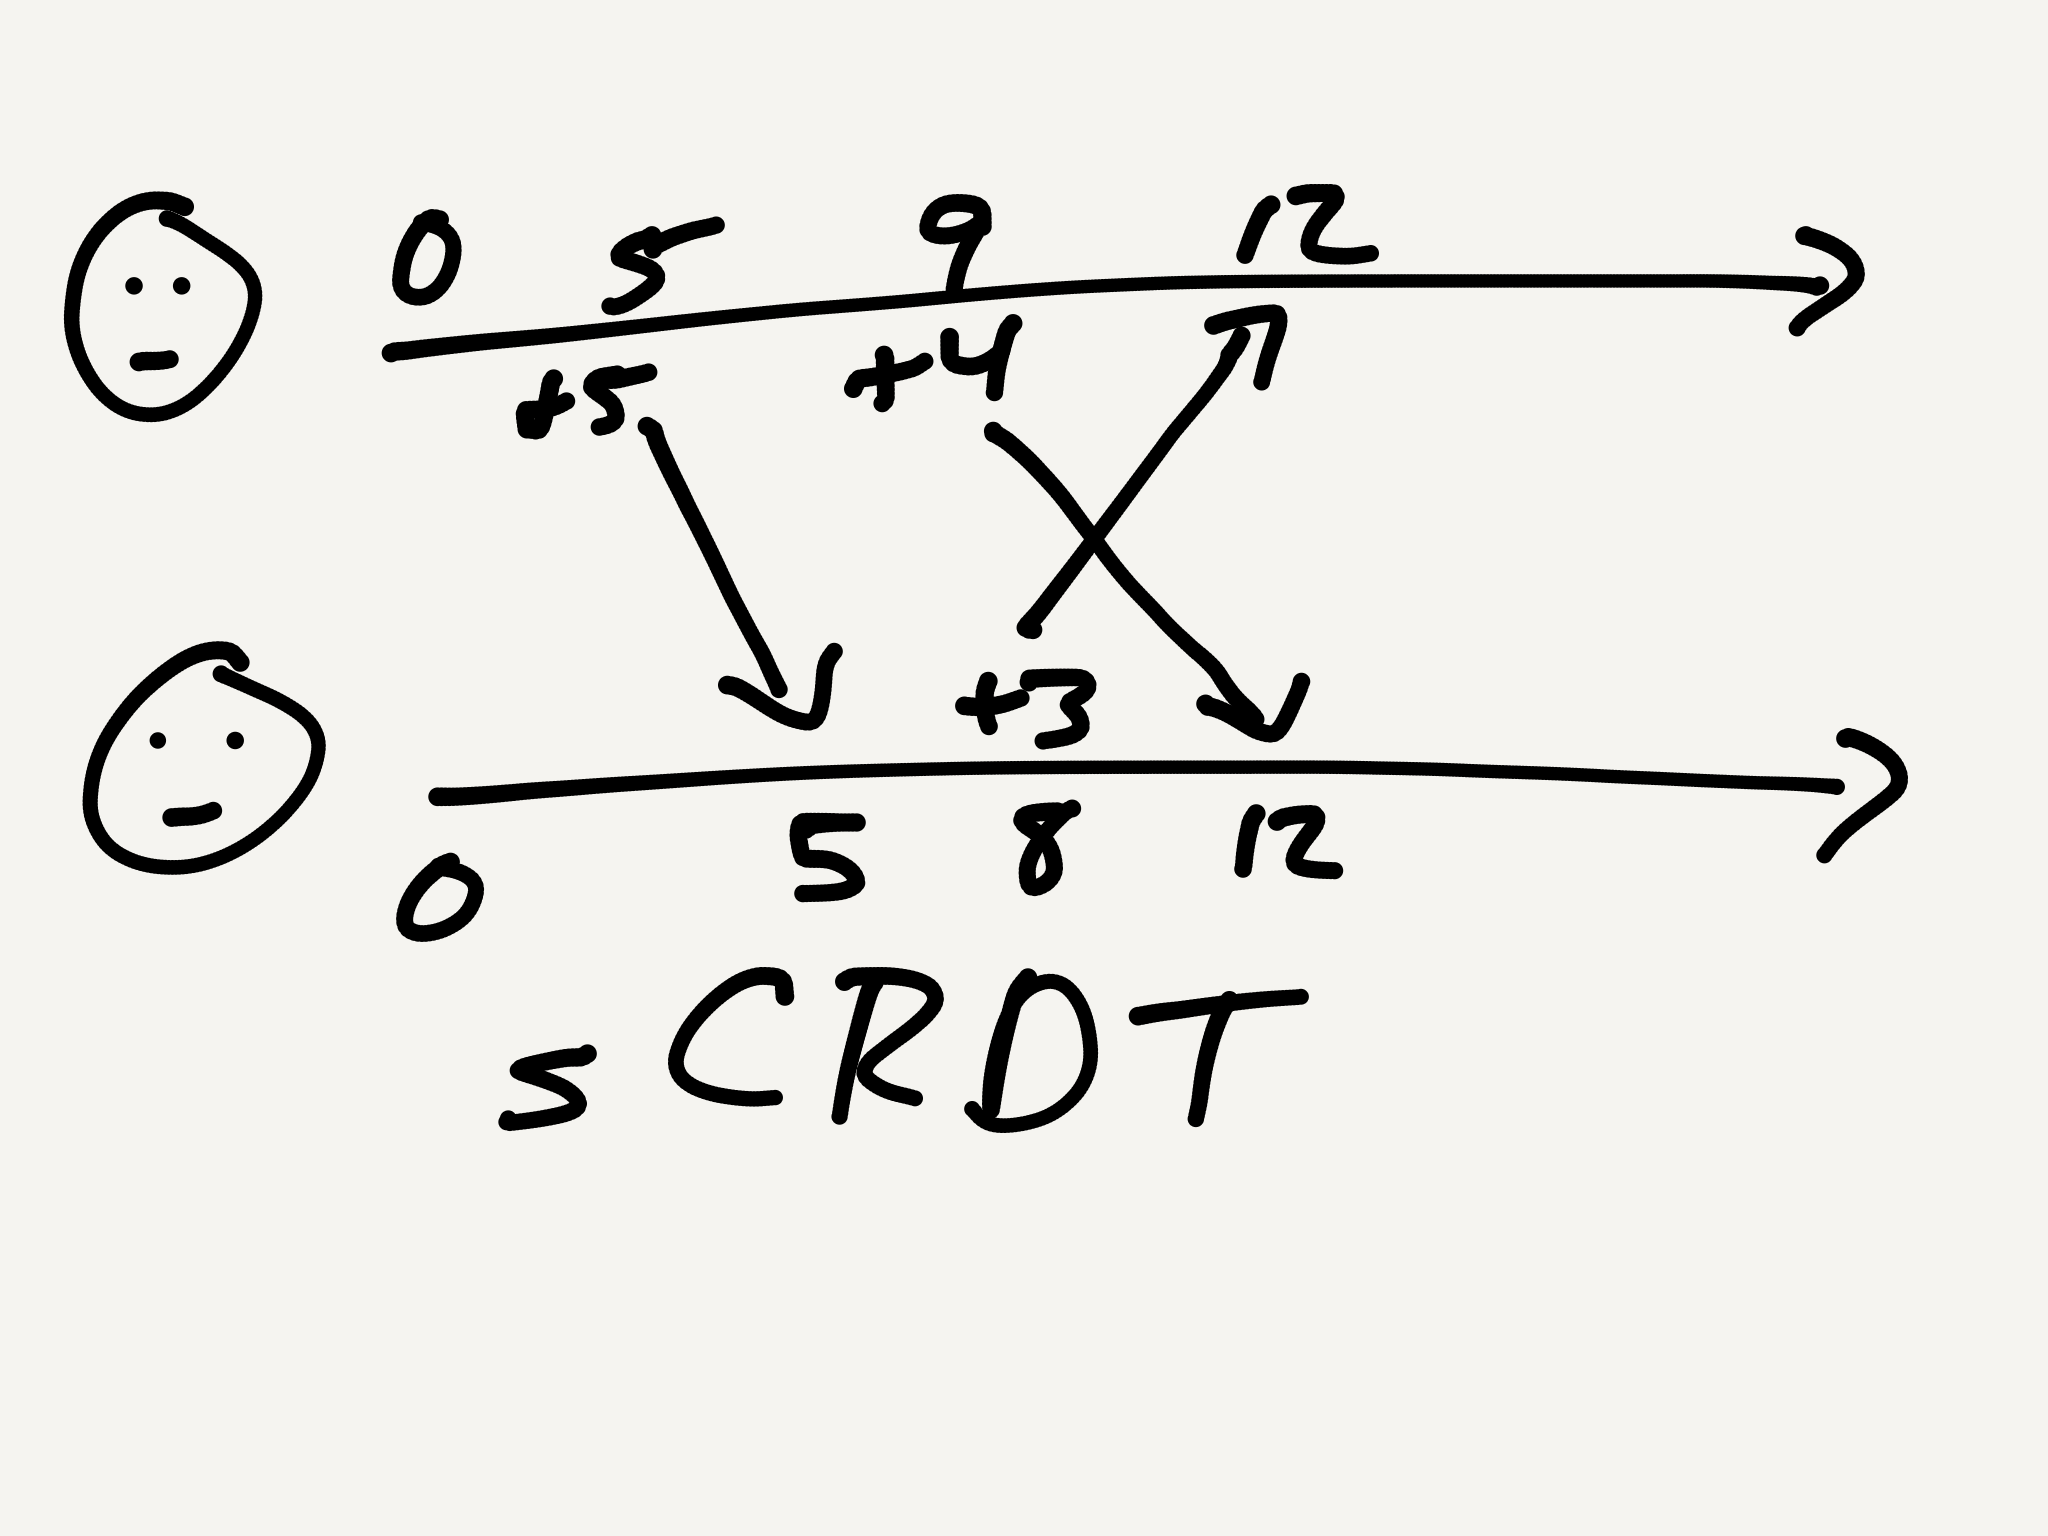 0 5 9 12
+5 +4
+3
0 5 8 12
s CRDT